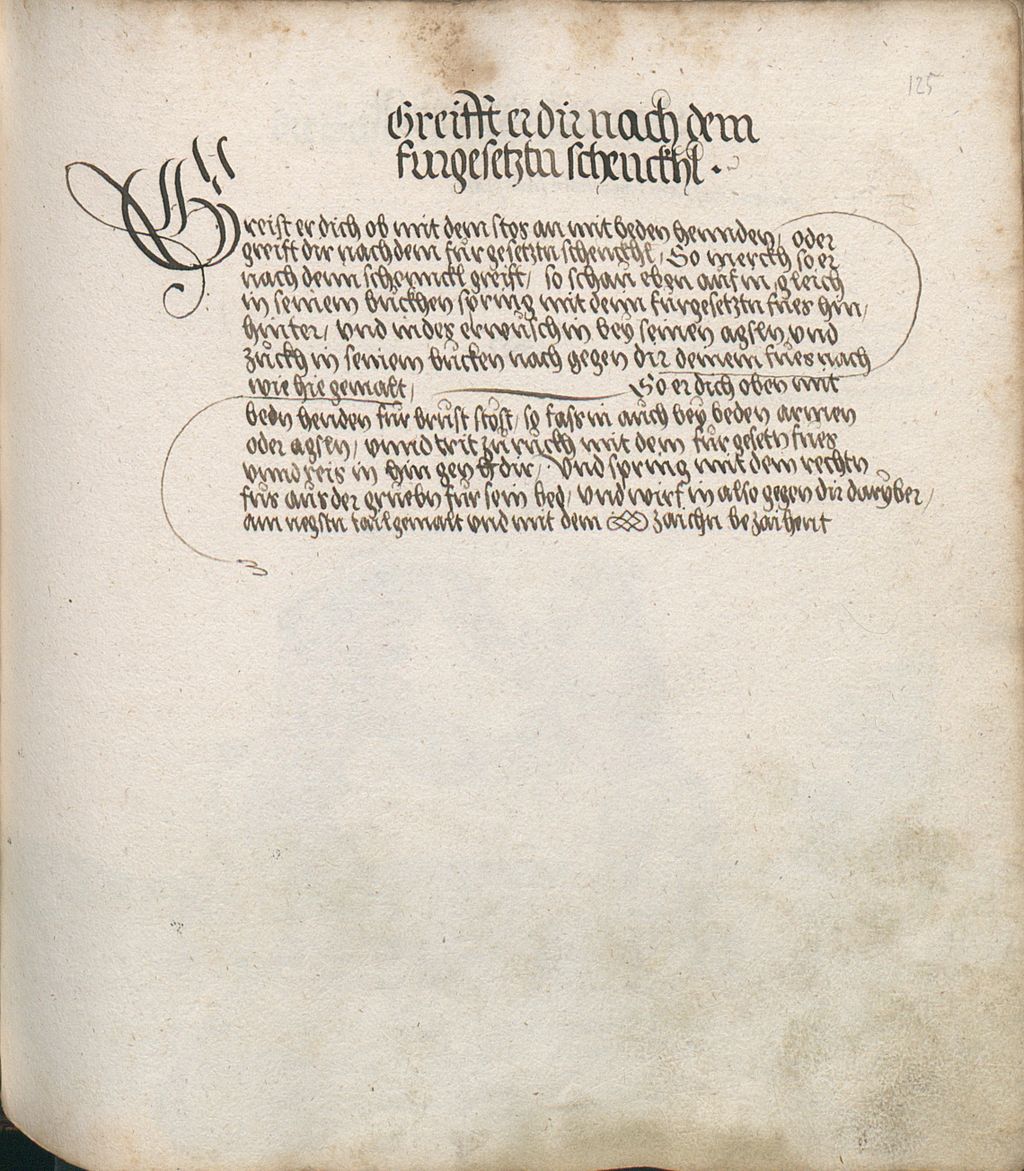 125
Greifft er dir nach dem
furgesetztn schenckhl .
Greift er dich ob mit dem stos an mit beden hennden, oder
greift dir nach dem fur gesetztn schenckhl, So merckh so er
nach dem schennckl greift, so schau eben auf in, gleich
in seinem buckhen spring mit dem furgesetztn fues hin,
hinter, vnd indes erwusch in bey seinen agsln vnd
zuckh in seinem bucken nach gegen dir deinem fues nach
wie hie gemalt, So er dich oben mit
bedn henden fur brust stost, so fass in auch bey beden armen
oder agsln, vnnd trit zu ruckh mit dem fur gesetzn fues
vnnd reis in hin gen dir, Vnd spring mit dem rechtn
fus aus der gruebn fur sein bed, vnd wirf in also gegen dir daruber,
am negstn tail gemalt vnd mit dem zaichn bezaihent